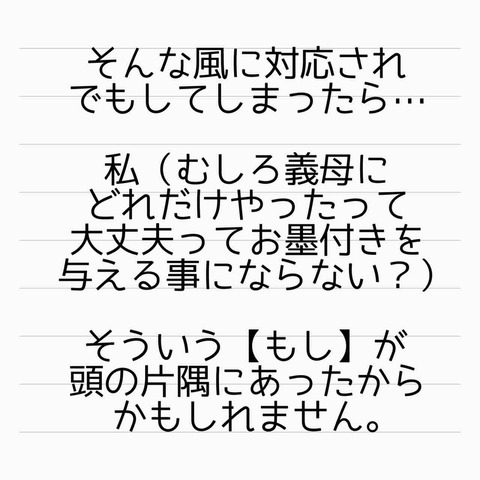 そんな風に対応され
でもしてしまったら…
私（むしろ義母に
どれだけやったって
大丈夫ってお墨付きを
与える事にならない？）
そういう【もし】が
頭の片隅にあったから
かもしれません。